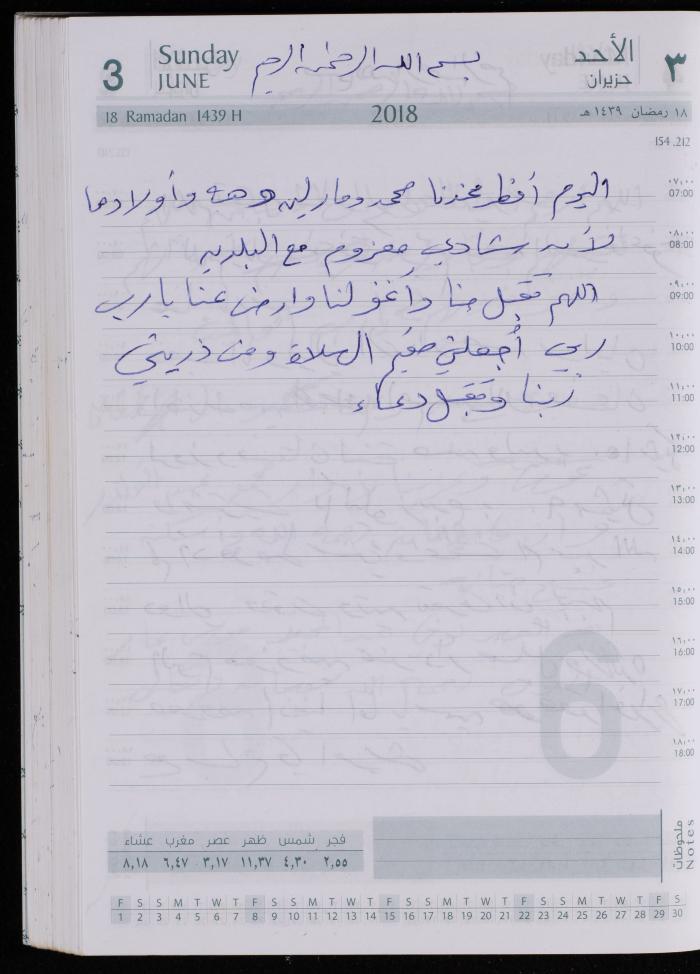 3
Sunday
JUNE
بسم الله الرحمن الرحيم
الأحد
حزيران
٣
18 Ramadan 1439 H
2018
١٨ رمضان ١٤٣٩ هـ
154 .212
اليوم أفطر عندنا محمد ومارلين وهبه وأولادها
لأنه شادي معزوم مع البلديه
اللهم تقبل منا وأغفو لنا وارض عنا يارب
ربي أجعلني مقيم الصلاة ومن ذريتي
ربنا وتقبل دعاء
٠٧,٠٠
07:00
٠٨,٠٠
08:00
٠٩,٠٠
09:00
١٠,٠٠
10:00
١١,٠٠
11:00
١٢,٠٠
12:00
١٣,٠٠
13:00
١٤,٠٠
14:00
١٥,٠٠
15:00
١٦,٠٠
16:00
١٧,٠٠
17:00
١٨,٠٠
18:00
6
فجر شمس ظهر عصر مغرب عشاء
٢,٥٥ ٤,٣٠ ١١,٣٧ ٣,١٧ ٦,٤٧ ٨,١٨
ملحوظات
Notes
F S S M T W T F S S M T W T F S S M T W T F S S M T W T F S
1 2 3 4 5 6 7 8 9 10 11 12 13 14 15 16 17 18 19 20 21 22 23 24 25 26 27 28 29 30